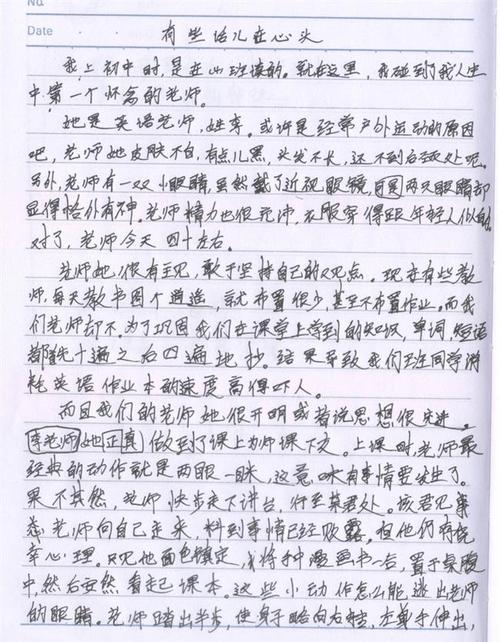 No.
Date
有些话儿在心头
我上初中时,是在山班读的。就在这里,我碰到了我人生
中第一个怀念的老师。
她是英语老师,姓李。或许是经常户外运动的原因
吧,老师她皮肤不白,有点儿黑,头发不长,还不到后颈处呢。
另外,老师有一双小眼睛,虽然戴了近视眼镜,但两只眼睛却
显得恰外有神。老师精力也很充沛,衣服穿得跟年轻人似的
对了,老师今天四十左右。
老师她很有主见,敢于坚持自己的观点。现在有些教
师,每天教书图个逍遥,就布置很少,甚至不布置作业。而我
们老师却不。为了巩固我们在课堂上学到的知识,单词,短语
都先十遍之后四遍地抄。结果导致我们班同学消
耗英语作业本的速度高得吓人。
而且我们的老师她很开明或者说思想很先进。
李老师她正真做到了课上为师课下友。上课时,老师最
经典的动作就是两眼一眯,这竟味有事情要发生了。
果不其然,老师快步走下讲台,行至某君处。该君见
老师向自己走来,料到事情已经败露。但他仍有侥
幸心理。只见他面色镇定,将手中漫画书一合,置于桌腹
中,然后安然看起课本。这些小动作怎么能逃出老师
的眼睛。老师踏出半步,使身子略向右转,左单手伸出,